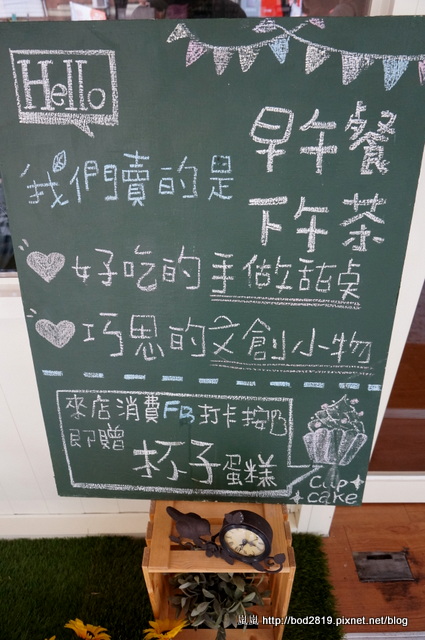 Hello
我們賣的是
早午餐
下午茶
好吃的手做甜桌
巧思的文創小物
來店消費FB打卡按讚
即贈
杯子蛋糕
Cup
cake
嵐嵐 http://bod2819.pixnet.net/blog